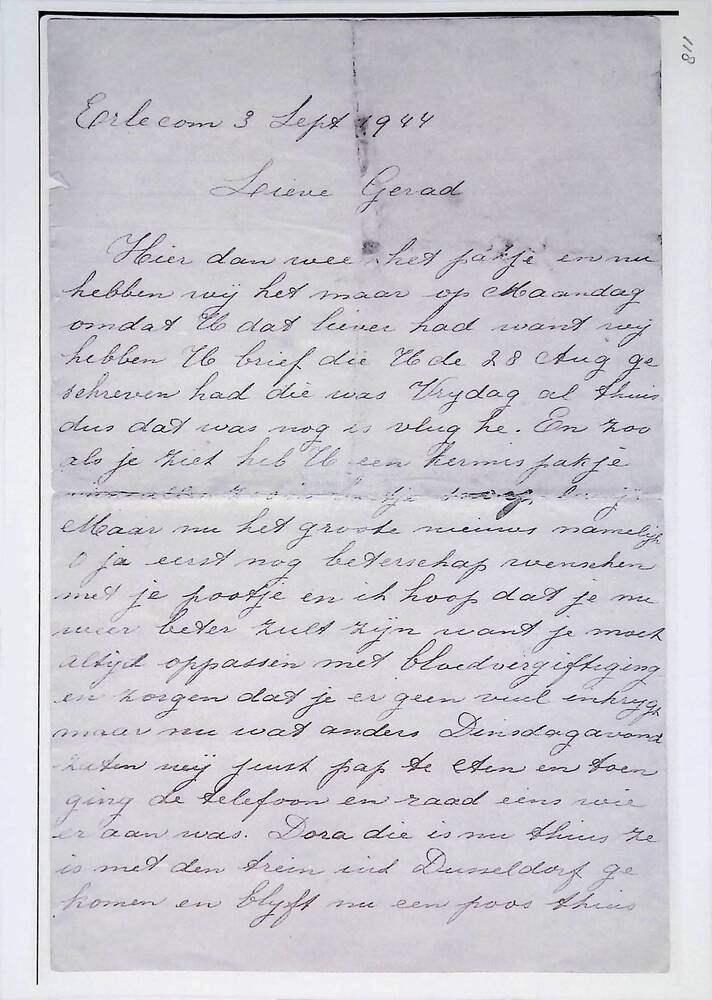 118
Erlecom 3 Sept 1944
Lieve Gerad
Hier dan wee het pakje en nu
hebben wij het maar op Maandag
omdat U dat liever had want wij
hebben U brief die U de 28 Aug ge
schreven had die was Vrydag al thuis
dus dat was nog is vlug he. En zoo
als je ziet heb U een kermispakje
Maar nu het groote nieuws namelijk
O ja eerst nog beterschap wenschen
met je pootje en ik hoop dat je nu
weer beter zult zijn want je moet
altyd oppassen met bloedvergiftiging
en zorgen dat je er geen vuil inkrygt
maar nu wat anders Dinsdagavond
zaten wij juist pap te eten en toen
ging de telefoon en raad eens wie
er aan was. Dora die is nu thuis ze
is met den trein uit Dusseldorf ge
komen en blyft nu een poos thuis